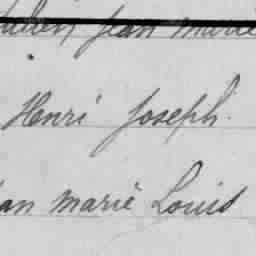 Jean Marie
Henri Joseph.
an Marie Louis